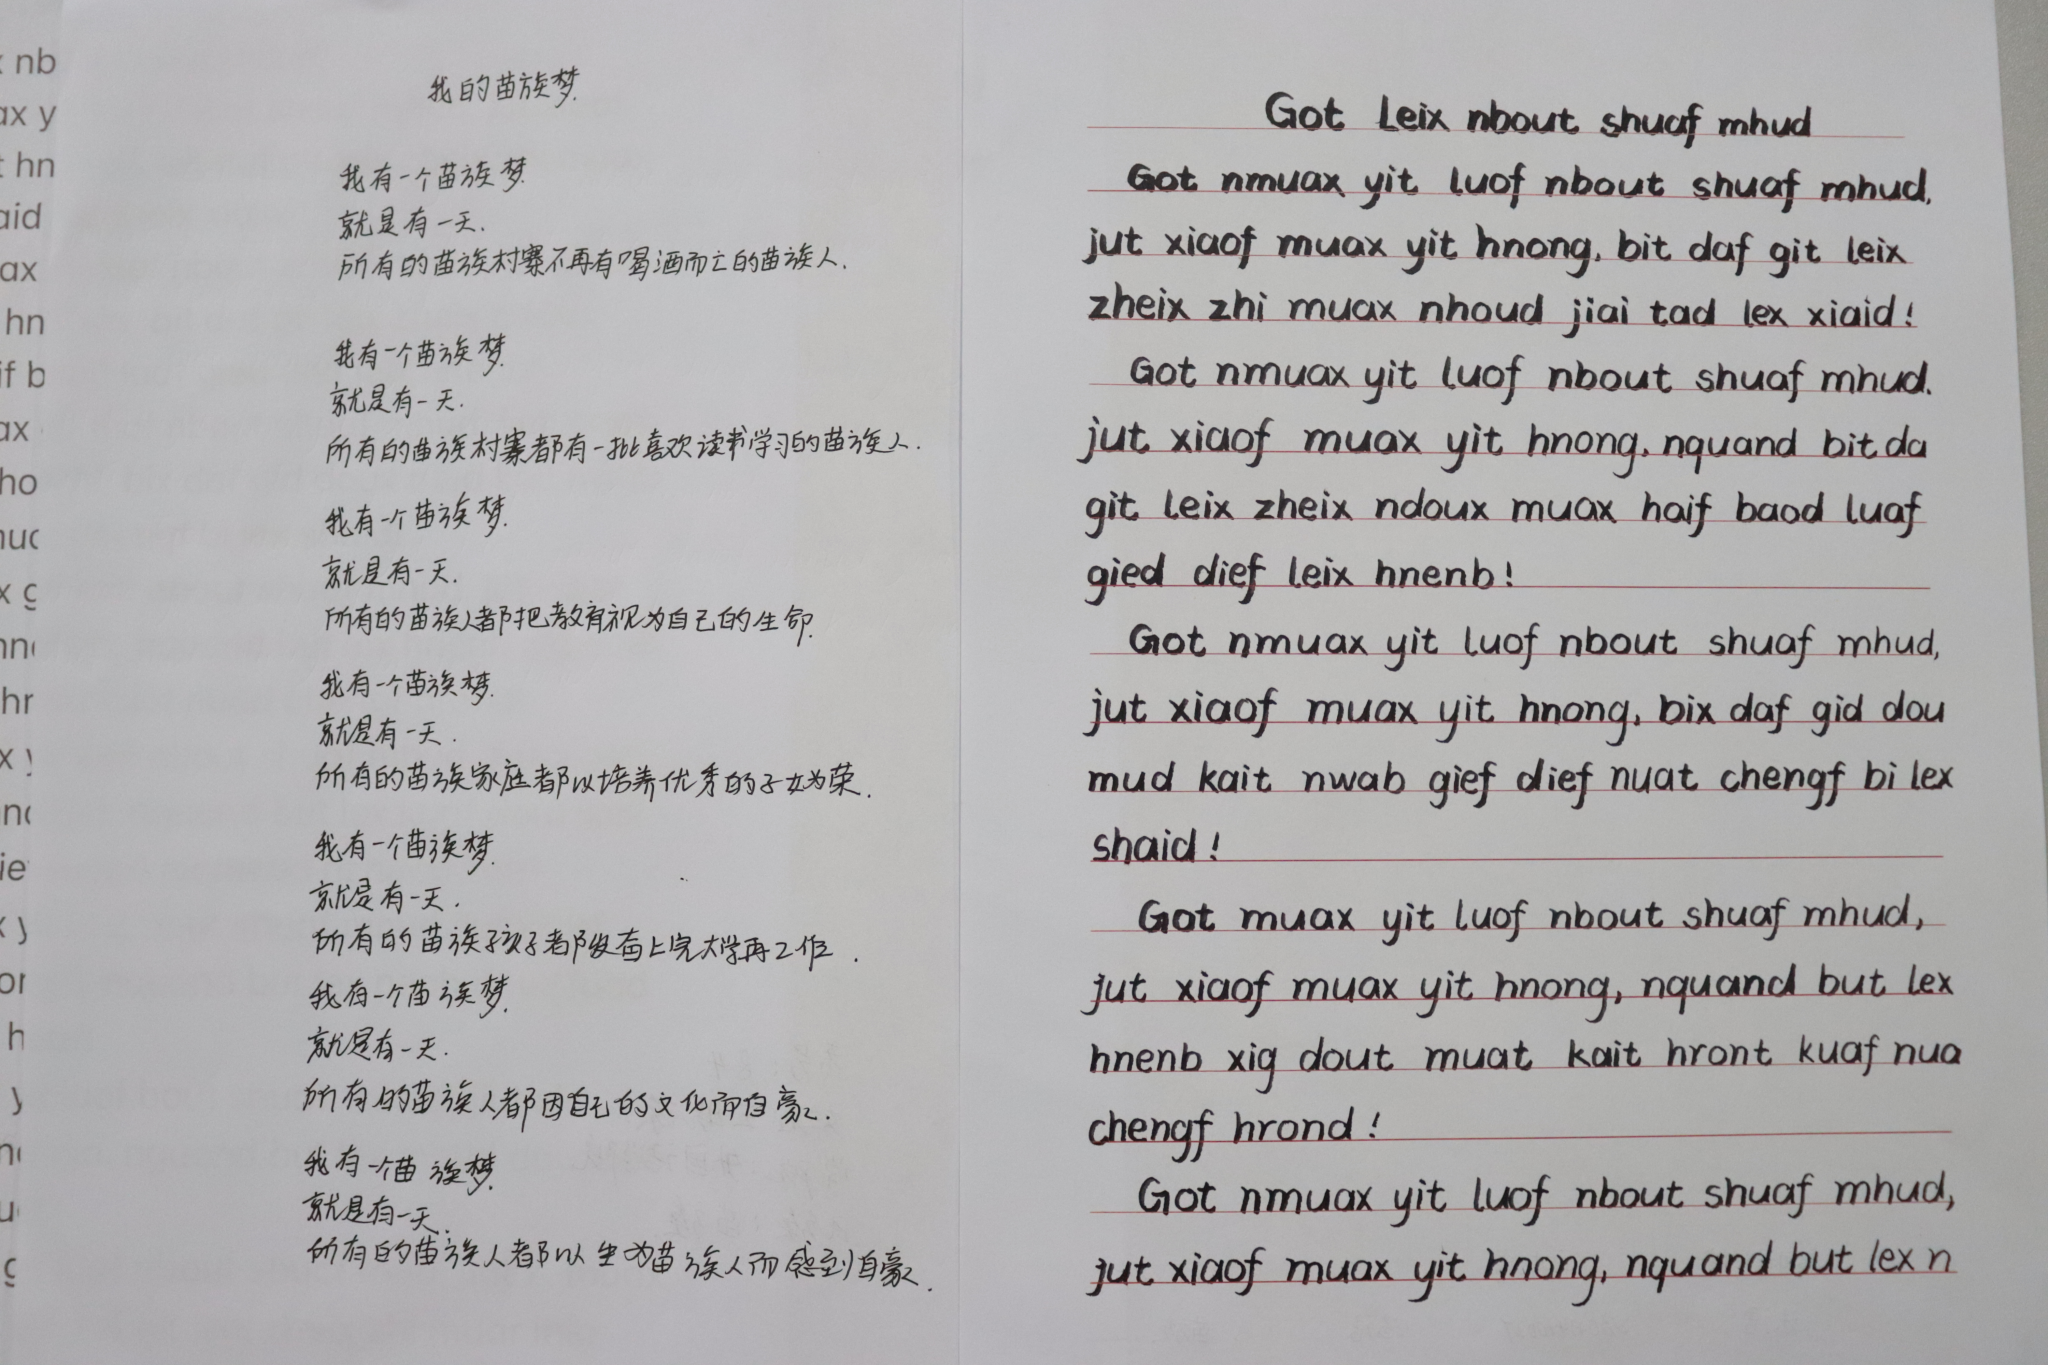 我的苗族梦.
我有一个苗族梦.
就是有一天.
所有的苗族村寨不再有喝酒而亡的苗族人.
我有一个苗族梦.
就是有一天.
所有的苗族村寨都有一批喜欢读书学习的苗族人.
我有一个苗族梦.
就是有一天.
所有的苗族人都把教育视为自己的生命.
我有一个苗族梦.
就是有一天.
所有的苗族家庭都以培养优秀的子女为荣.
我有一个苗族梦.
就是有一天.
所有的苗族孩子都发奋上完大学再工作.
我有一个苗族梦.
就是有一天.
所有的苗族人都因自己的文化而自豪.
我有一个苗族梦.
就是有一天.
所有的苗族人都以生为苗族人而感到自豪.
Got Leix nbout shuaf mhud
Got nmuax yit luof nbout shuaf mhud,
jut xiaof muax yit hnong, bit daf git leix
zheix zhi muax nhoud jiai tad lex xiaid!
Got nmuax yit luof nbout shuaf mhud.
jut xiaof muax yit hnong, nquand bit da
git leix zheix ndoux muax haif baod luaf
gied dief leix hnenb!
Got nmuax yit luof nbout shuaf mhud,
jut xiaof muax yit hnong, bix daf gid dou
mud kait nwab gief dief nuat chengf bi lex
shaid!
Got muax yit luof nbout shuaf mhud,
jut xiaof muax yit hnong, nquand but lex
hnenb xig dout muat kait hront kuaf nua
chengf hrond!
Got nmuax yit luof nbout shuaf mhud,
jut xiaof muax yit hnong, nquand but lex n